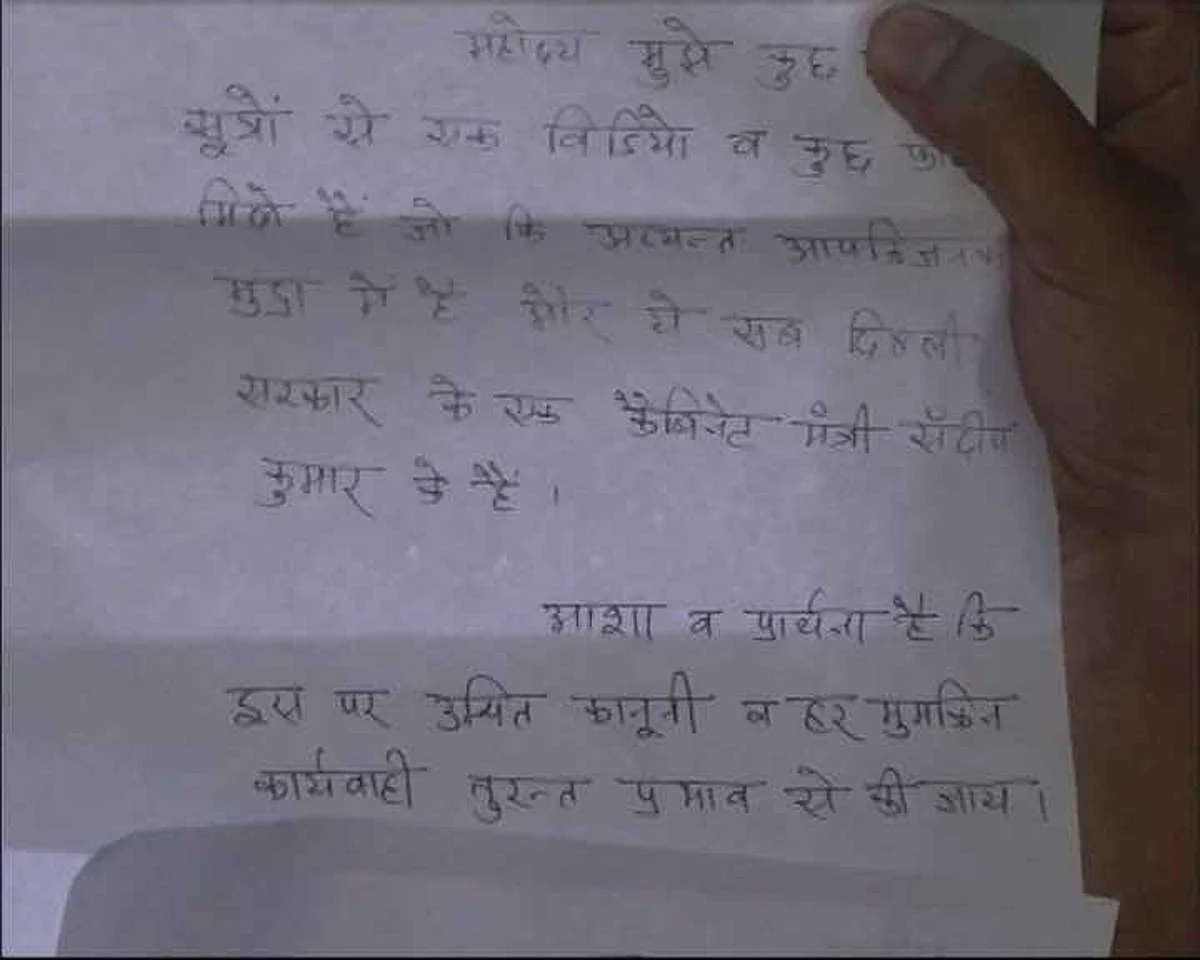 महोदय मुझे कुछ
सूत्रों से एक विडियो व कुछ
मिले हैं जो कि अत्यन्त आपत्तिजनक
मुद्रा में है और ये सब दिल्ली
सरकार के एक कैबिनेट मंत्री संदीप
कुमार के हैं ।
आशा व प्रार्थना है कि
इस पर उचित कानूनी व हर मुमकिन
कार्यवाही तुरन्त प्रभाव से की जाय ।